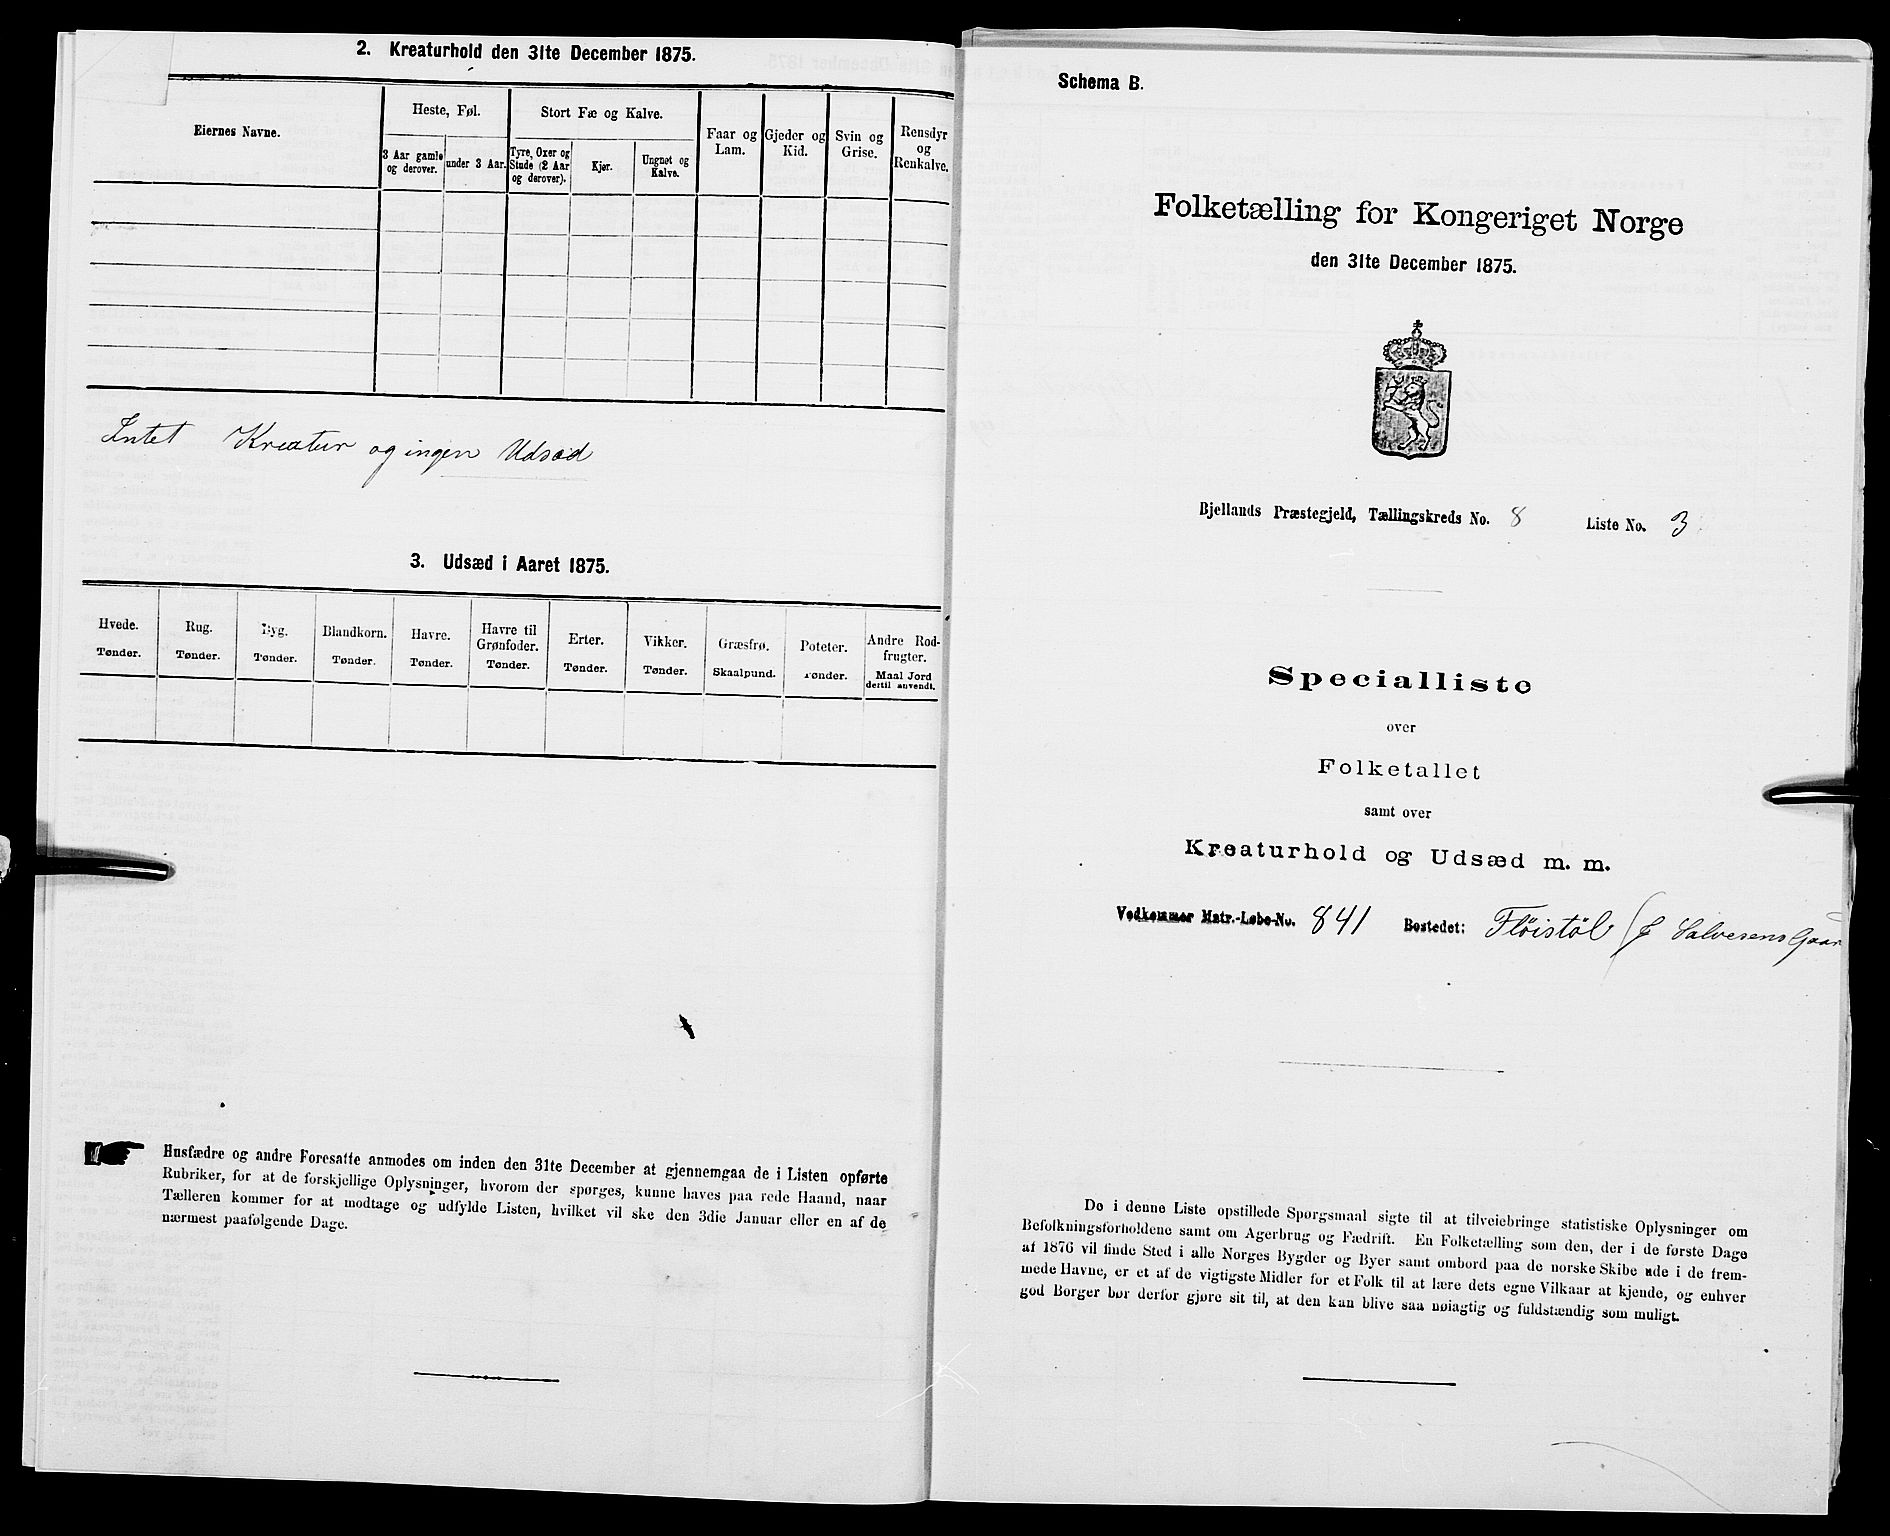 2. Kreaturhold den 31te December 1875.
Eiernes Navne.
Heste, Føl.
3 Aar gamle og derover.
under 3 Aar.
Stort Fæ og Kalve.
Tyre, Oxer og Stude (2 Aar og derover).
Kjør.
Ungnøt og Kalve.
Faar og Lam.
Gjeder og Kid.
Svin og Grise.
Rensdyr og Renkalve.
Intet Kreatur og ingen Udsæd
3. Udsæd i Aaret 1875.
Hvede. Tønder.
Rug. Tønder.
Byg. Tønder.
Blandkorn. Tønder.
Havre. Tønder.
Havre til Grønfoder. Tønder.
Erter. Tønder.
Vikker. Tønder.
Græsfrø. Skaalpund.
Poteter. Tønder.
Andre Rodfrugter. Maal Jord dertil anvendt.
Husfædre og andre Foresatte anmodes om inden den 31te December at gjennemgaa de i Listen opførte
Rubriker, for at de forskjellige Oplysninger, hvorom der spørges, kunne haves paa rede Haand, naar
Tælleren kommer for at modtage og udfylde Listen, hvilket vil ske den 3die Januar eller en af de
nærmest paafølgende Dage.
Schema B.
Folketælling for Kongeriget Norge
den 31te December 1875.
Bjellands Præstegjeld, Tællingskreds No. 8 Liste No. 3
Specialliste
over
Folketallet
samt over
Kreaturhold og Udsæd m. m.
Vedkommer Matr.-Løbe-No. 841 Bostedet: Fløistøl (J Salvesens Gaar
De i denne Liste opstillede Spørgsmaal sigte til at tilveiebringe statistiske Oplysninger om
Befolkningsforholdene samt om Agerbrug og Fædrift. En Folketælling som den, der i de første Dage
af 1876 vil finde Sted i alle Norges Bygder og Byer samt ombord paa de norske Skibe ude i de frem-
mede Havne, er et af de vigtigste Midler for et Folk til at lære dets egne Vilkaar at kjende, og enhver
god Borger bør derfor gjøre sit til, at den kan blive saa nøiagtig og fuldstændig som muligt.